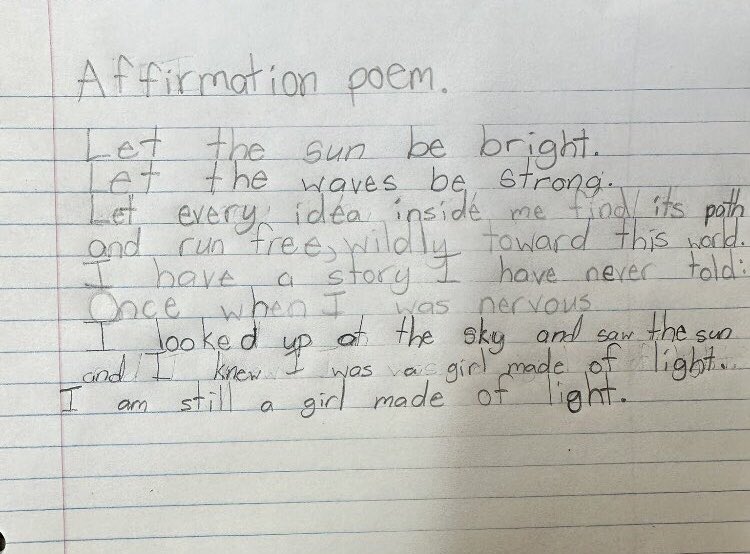 Affirmation poem.
Let the sun be bright.
Let the waves be strong.
Let every idea inside me find its path
and run free, wildly toward this world.
I have a story I have never told:
Once when I was nervous
I looked up at the sky and saw the sun
and I knew I was a girl made of light.
I am still a girl made of light.